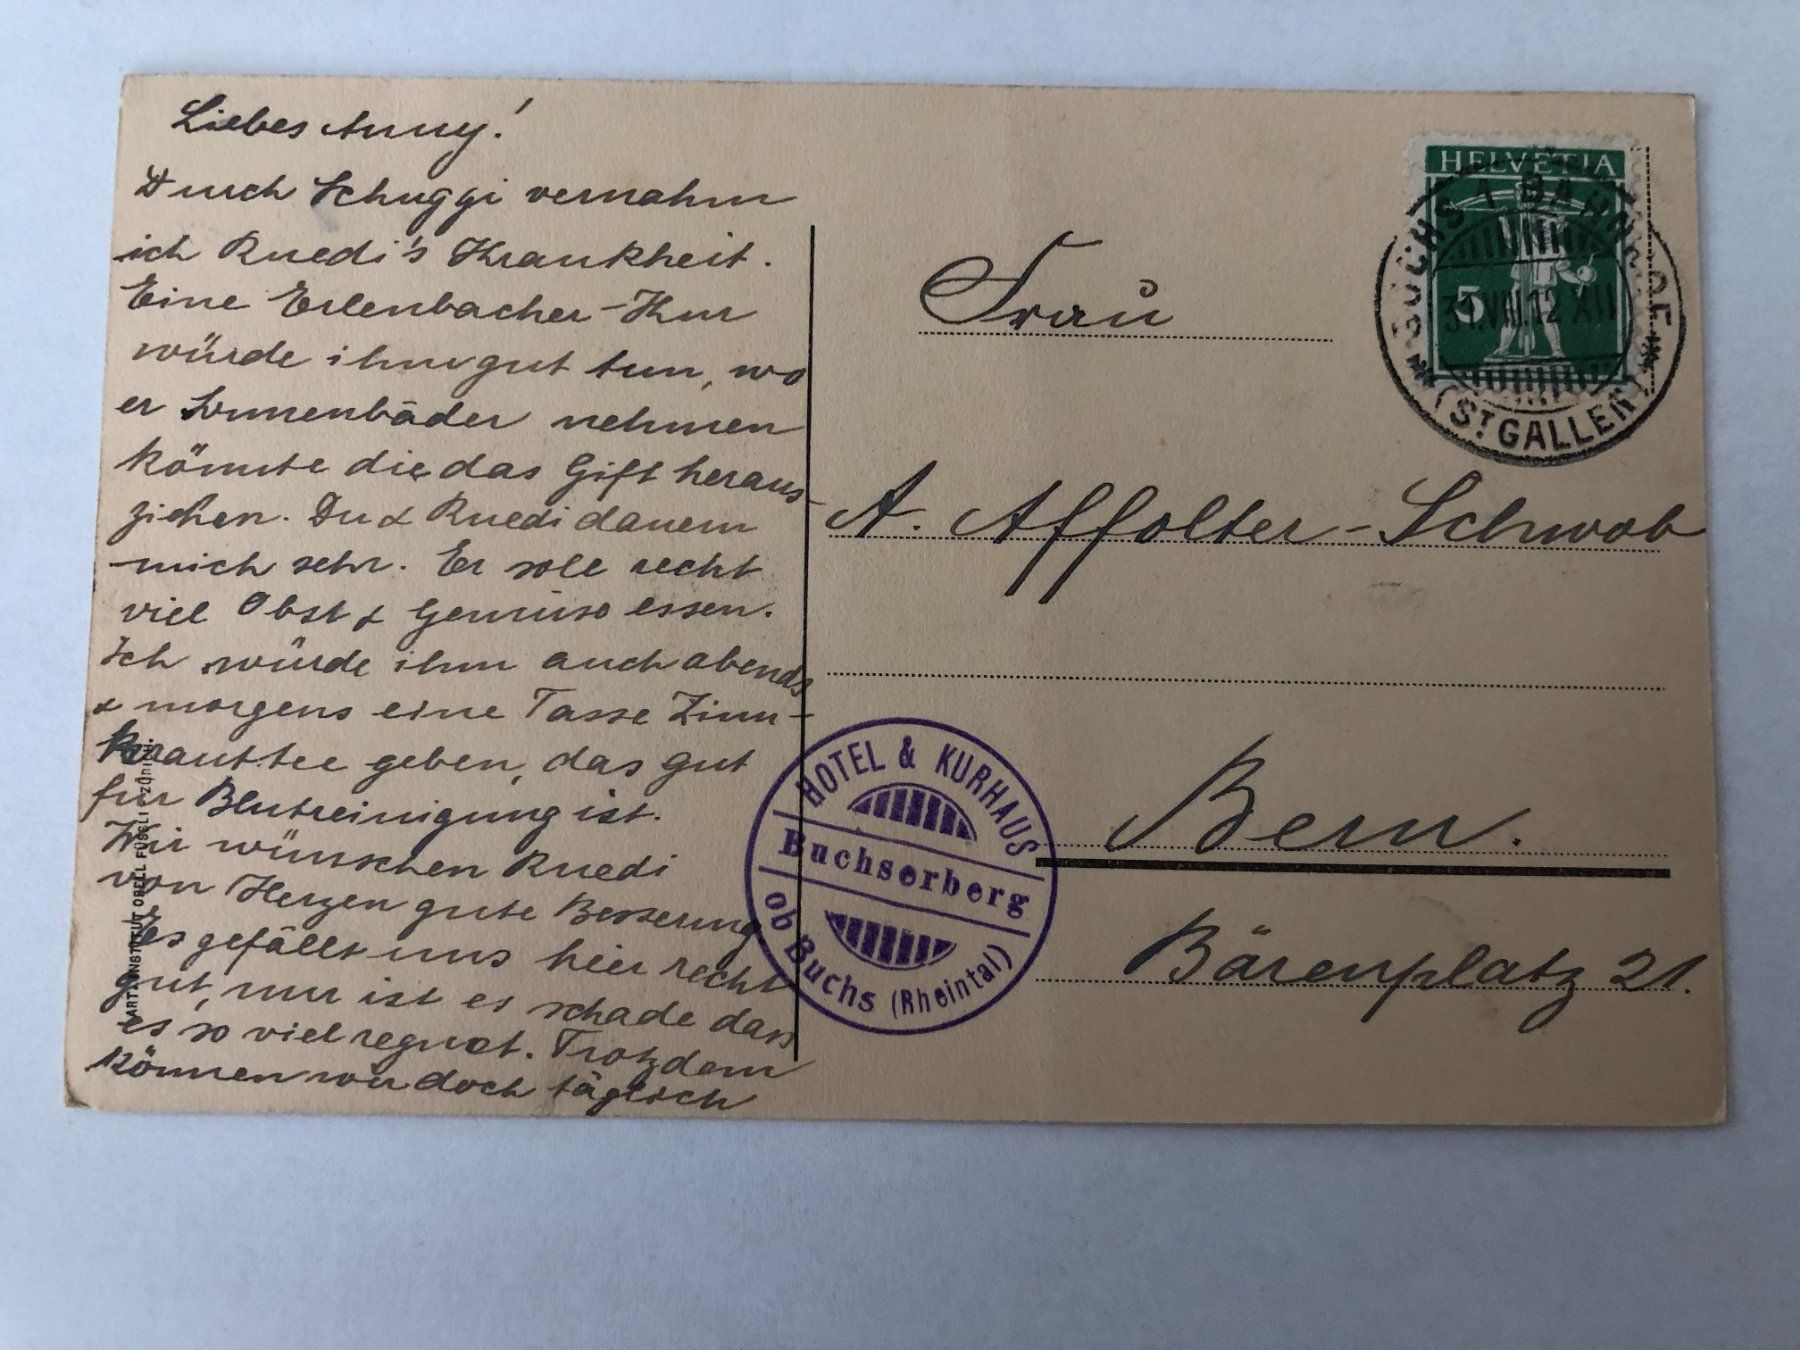 Liebes Anny!
Durch Schuggi vernahm
ich Ruedi's Krankheit.
Eine Erlenbacher-Kur
würde ihm gut tun, wo
er Sonnenbäder nehmen
könnte die das Gift heraus-
ziehen. Du & Ruedi dauern
mich sehr. Er sole recht
viel Obst & Gemüse essen.
Ich würde ihm auch abends
& morgens eine Tasse Zinn-
krauttee geben, das gut
für Blutreinigung ist.
Wir wünschen Ruedi
von Herzen gute Besserung
Es gefällt uns hier recht
gut, nur ist es schade dass
es so viel regnet. Trotzdem
können wir doch täglich
ART. INSTITUT ORELL FÜSSLI · ZÜRICH
HELVETIA
5
BUCHS 1 BAHNHOF
31.VIII.12 XII
(ST GALLEN)
Frau
A. Affolter-Schwob
Bern.
Bärenplatz 21.
HOTEL & KURHAUS
Buchserberg
ob Buchs (Rheintal)